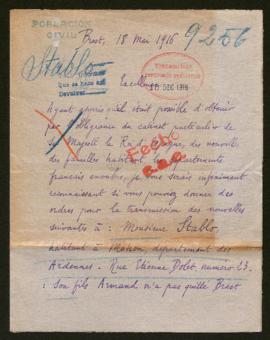 POBLACION
CIVIL
Brest, 18 Mai 1916
9256
Stablo
Excellence
Que se hace en
Devolver
DEC 1916
Ayant appris qu'il était possible d'obtenir
par l'obligeance du cabinet particulier de
Sa Majesté le Roi d'Espagne, des nouvelles
des familles habitant les départements
français envahis, je vous serais infiniment
reconnaissant si vous pouviez donner des
ordres pour la transmission des nouvelles
suivantes à : Monsieur Stablo,
habitant à Mohon, département des
Ardennes. Rue Etienne Dolet, numéro 23.
: Son fils Armand n'a pas quitté Brest
Fecho